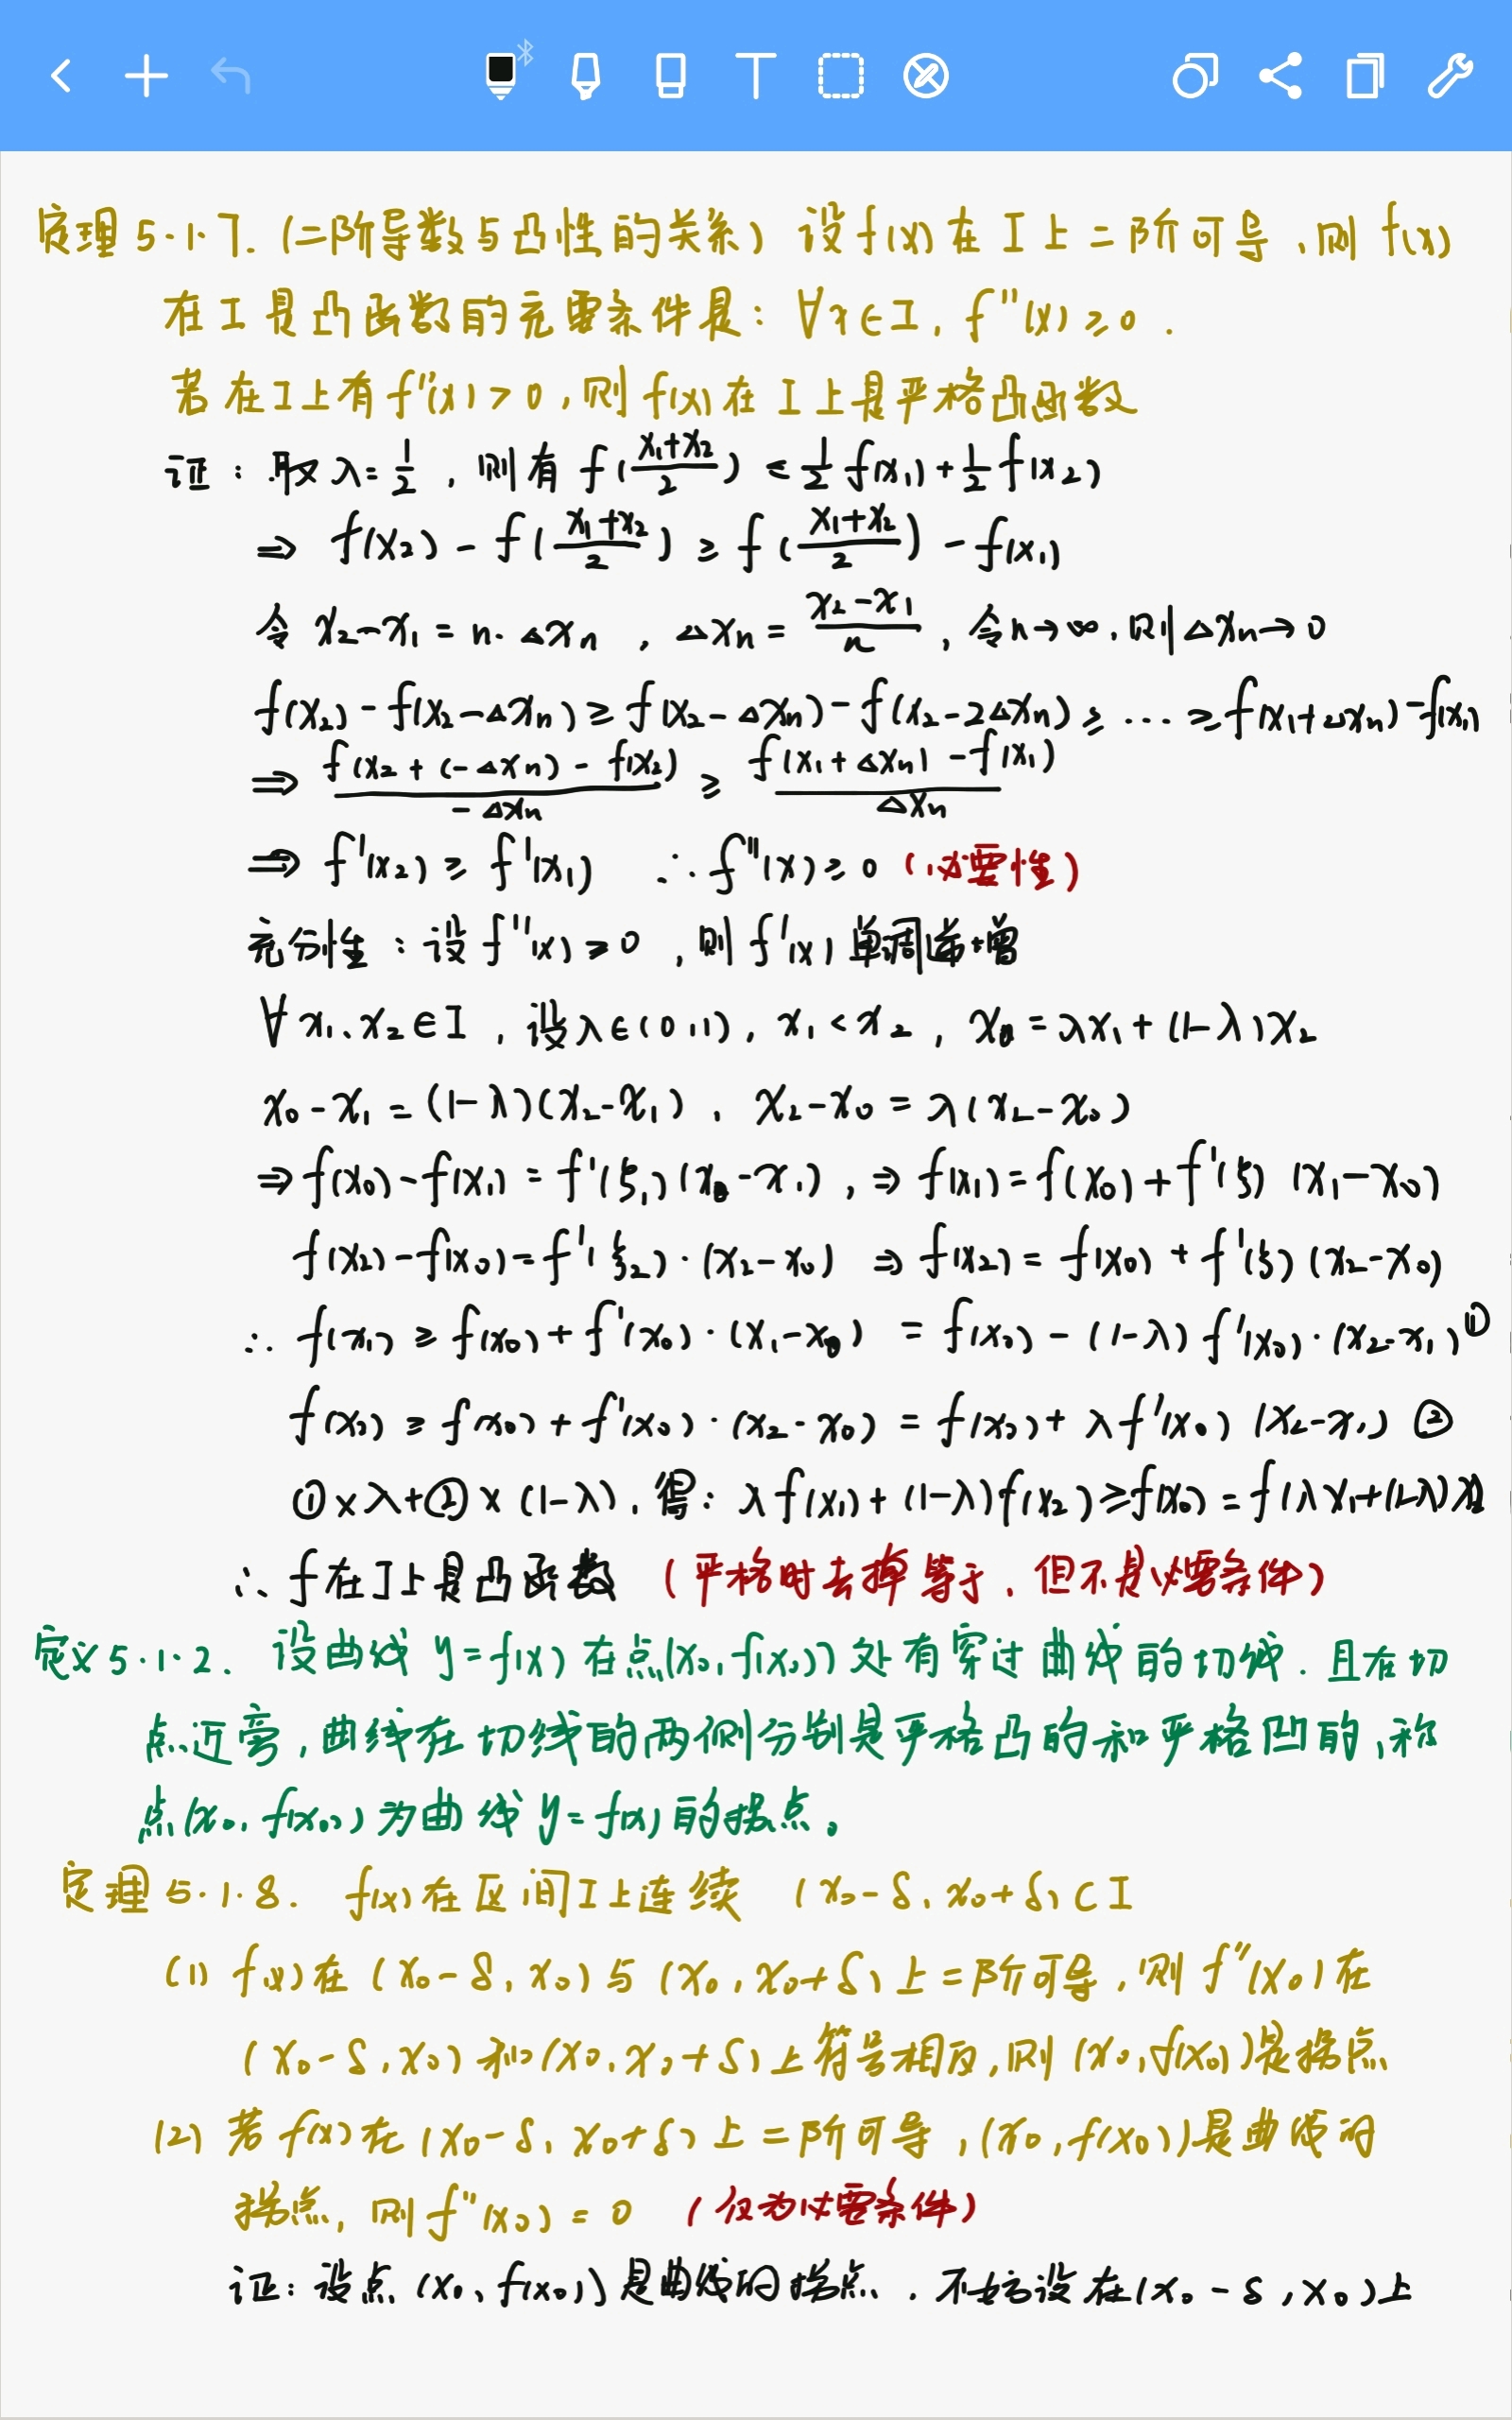 定理 5.1.7. (二阶导数与凸性的关系) 设 f(x) 在 I 上二阶可导,则 f(x)
在 I 是凸函数的充要条件是: ∀x∈I, f''(x) ≥ 0 .
若在 I 上有 f''(x) > 0 ,则 f(x) 在 I 上是严格凸函数
证: 取 λ = 1/2 , 则有 f((x₁+x₂)/2) ≤ 1/2 f(x₁) + 1/2 f(x₂)
⇒ f(x₂) - f((x₁+x₂)/2) ≥ f((x₁+x₂)/2) - f(x₁)
令 x₂-x₁ = n·Δxₙ , Δxₙ = (x₂-x₁)/n , 令 n→∞, 则 Δxₙ→0
f(x₂) - f(x₂-Δxₙ) ≥ f(x₂-Δxₙ) - f(x₂-2Δxₙ) ≥ … ≥ f(x₁+Δxₙ) - f(x₁)
⇒ (f(x₂+(-Δxₙ) - f(x₂))/(-Δxₙ) ≥ (f(x₁+Δxₙ) - f(x₁))/Δxₙ
⇒ f'(x₂) ≥ f'(x₁) ∴ f''(x) ≥ 0 (必要性)
充分性: 设 f''(x) ≥ 0 , 则 f'(x) 单调递增
∀ x₁、x₂∈I , 设 λ∈(0,1), x₁ < x₂ , x₀ = λx₁ + (1-λ)x₂
x₀-x₁ = (1-λ)(x₂-x₁) , x₂-x₀ = λ(x₂-x₀)
⇒ f(x₀) - f(x₁) = f'(ξ₁)(x₀-x₁) , ⇒ f(x₁) = f(x₀) + f'(ξ) (x₁-x₀)
f(x₂) - f(x₀) = f'(ξ₂)·(x₂-x₀) ⇒ f(x₂) = f(x₀) + f'(ξ) (x₂-x₀)
∴ f(x₁) ≥ f(x₀) + f'(x₀)·(x₁-x₀) = f(x₀) - (1-λ) f'(x₀)·(x₂-x₁) ①
f(x₂) ≥ f(x₀) + f'(x₀)·(x₂-x₀) = f(x₀) + λf'(x₀) (x₂-x₁) ②
①×λ+②×(1-λ), 得: λf(x₁) + (1-λ)f(x₂) ≥ f(x₀) = f(λx₁+(1-λ)x₂
∴ f 在 I 上是凸函数 (严格时去掉等于,但不是必要条件)
定义 5.1.2. 设曲线 y=f(x) 在点(x₀,f(x₀)) 处有穿过曲线的切线.且在切
点近旁,曲线在切线的两侧分别是严格凸的和严格凹的,称
点(x₀, f(x₀)) 为曲线 y=f(x) 的拐点。
定理 5.1.8. f(x) 在区间 I 上连续 (x₀-δ, x₀+δ) ⊂ I
(1) f(x) 在 (x₀-δ, x₀) 与 (x₀, x₀+δ) 上二阶可导,则 f''(x₀) 在
(x₀-δ, x₀) 和 (x₀, x₀+δ) 上符号相反,则 (x₀, f(x₀)) 是拐点
(2) 若 f(x) 在 (x₀-δ, x₀+δ) 上二阶可导, (x₀, f(x₀)) 是曲线的
拐点, 则 f''(x₀) = 0 (仅为必要条件)
证: 设点 (x₀, f(x₀)) 是曲线的拐点. 不妨设在 (x₀-δ, x₀) 上